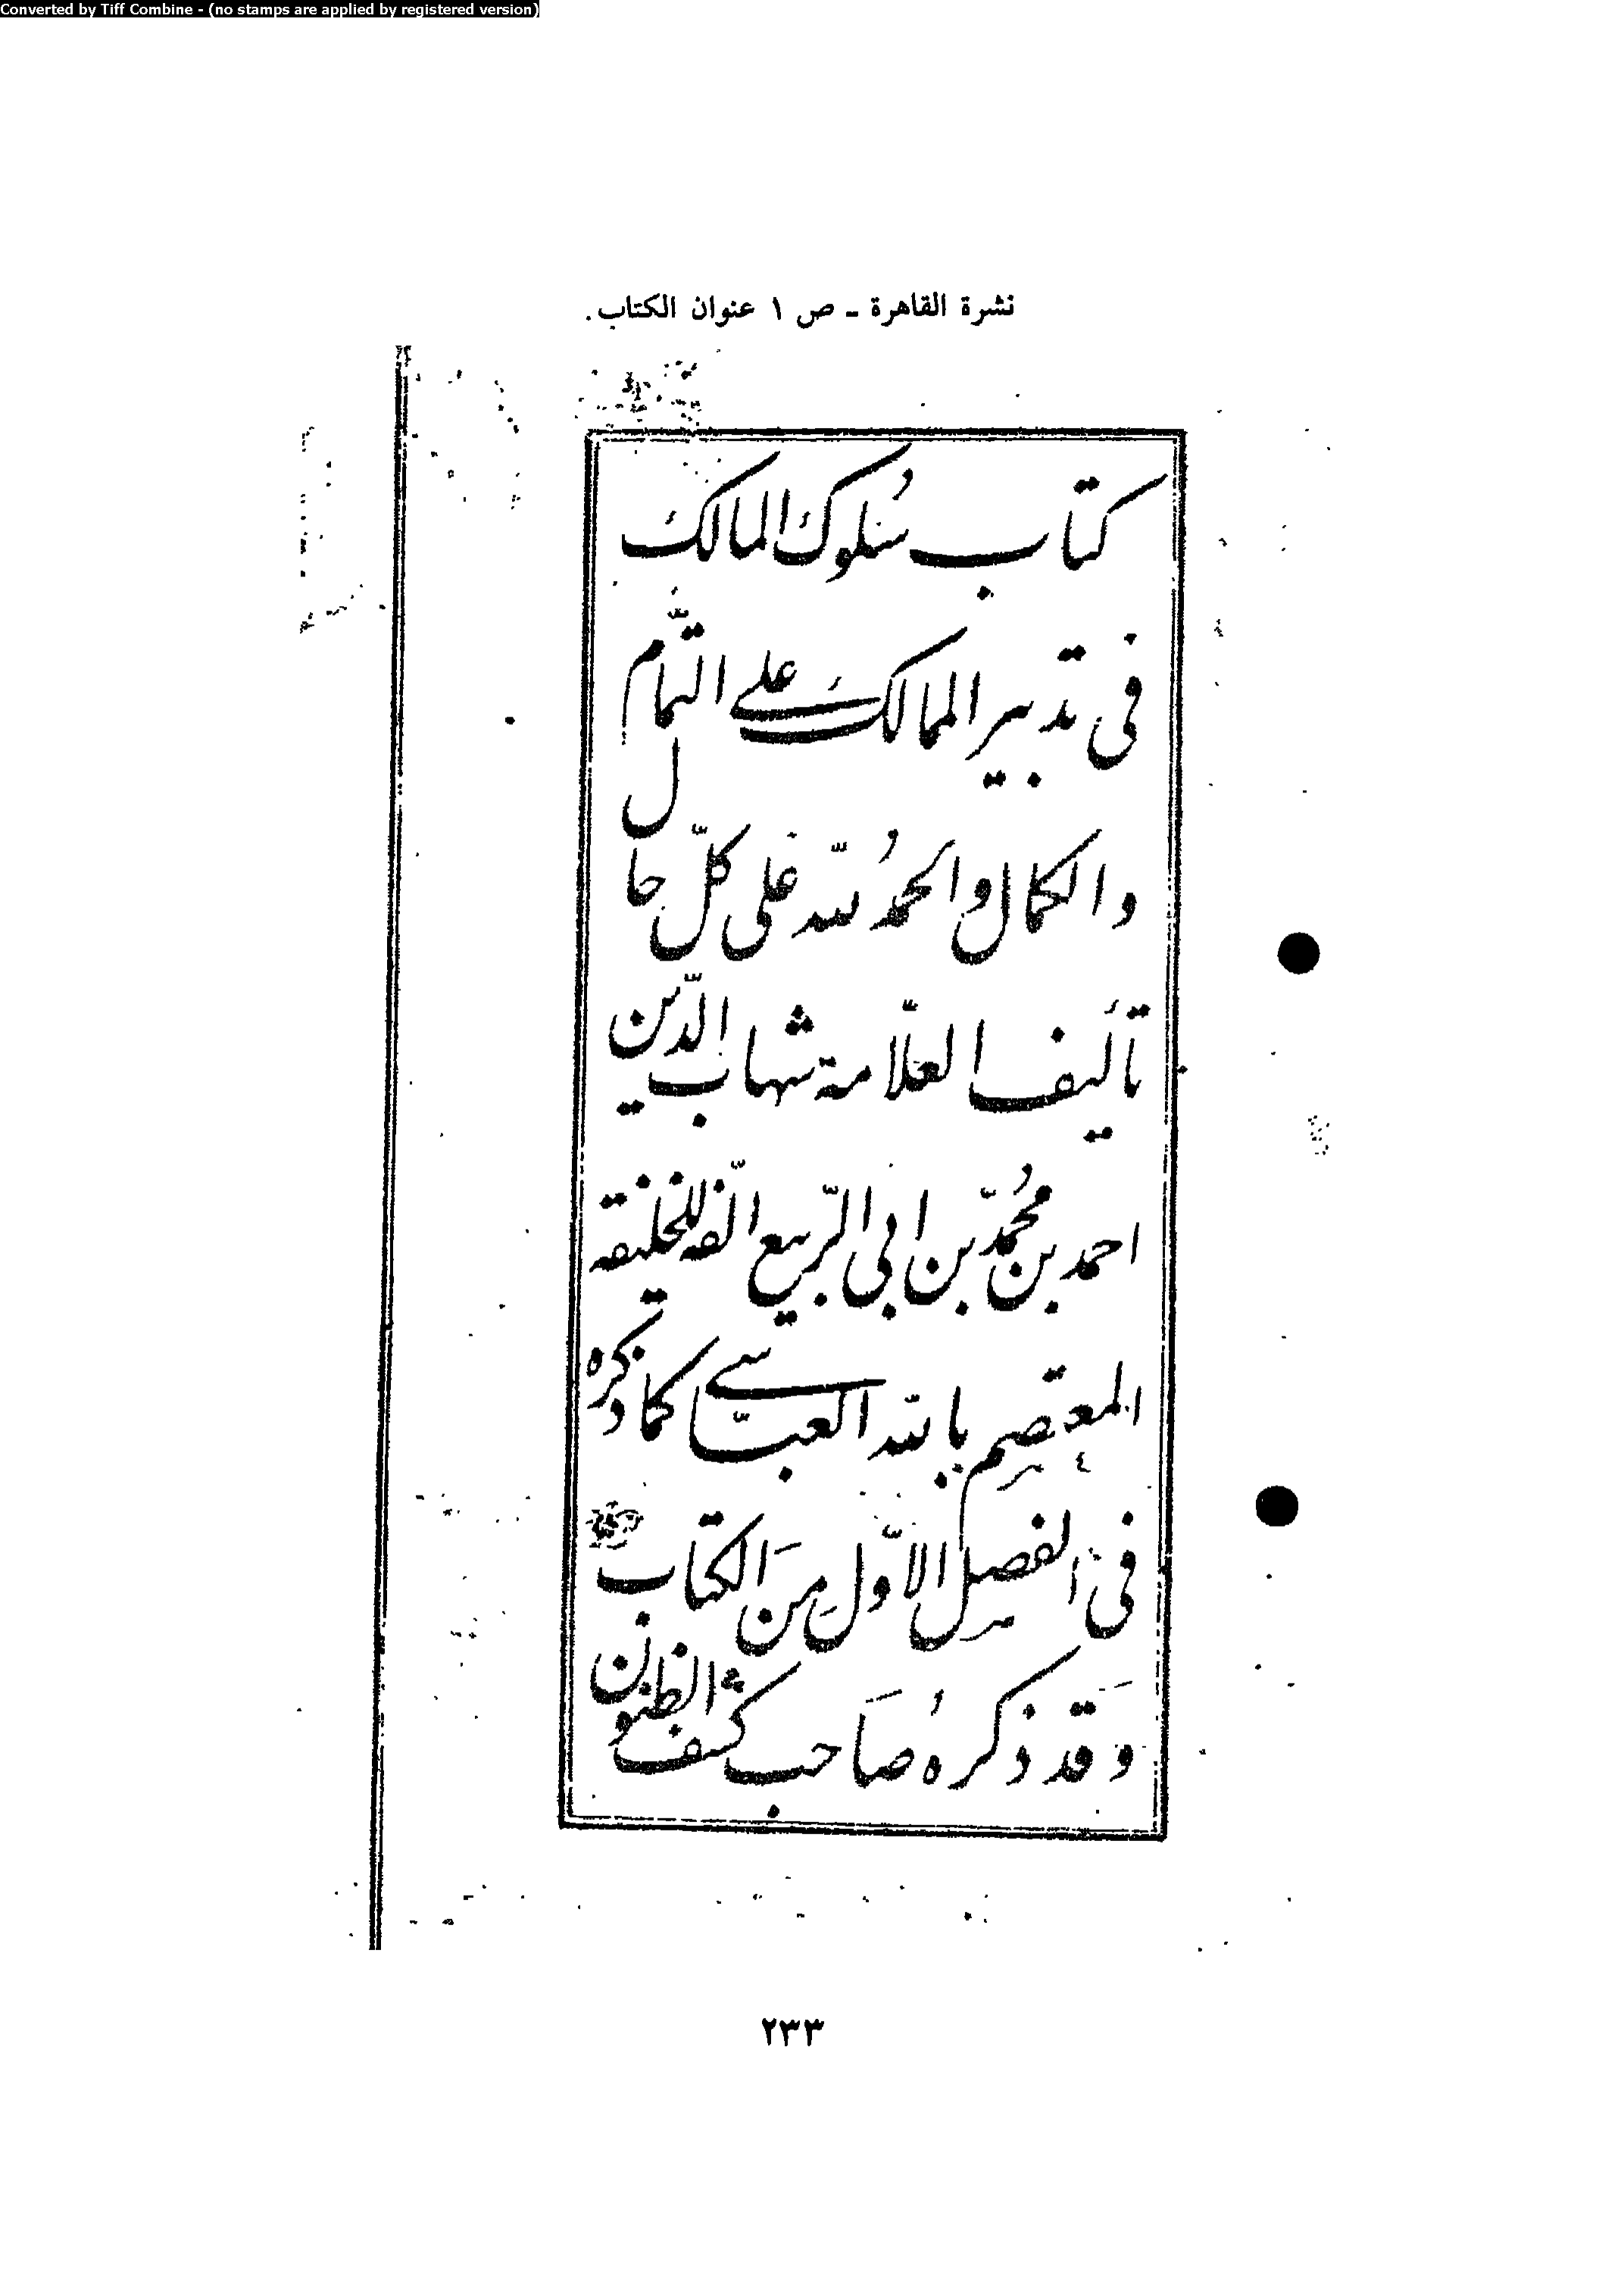 Converted by Tiff Combine - (no stamps are applied by registered version)
نشرة القاهرة - ص ١ عنوان الكتاب .
كتاب سُلوك المالك
في تدبير الممالك على التمّام
والكمال والحمدُ للّه على كلّ حال
تأليف العلّامة شهاب الدّين
احمد بن مُحمّد بن ابي الرّبيع الّفه للخليفة
المعتصم باللّه العبّاسي كما ذكره
في الفصل الاوّلِ مِنَ الكتاب
وَقد ذكرهُ صَاحب كشف الظنون
٢٣٣